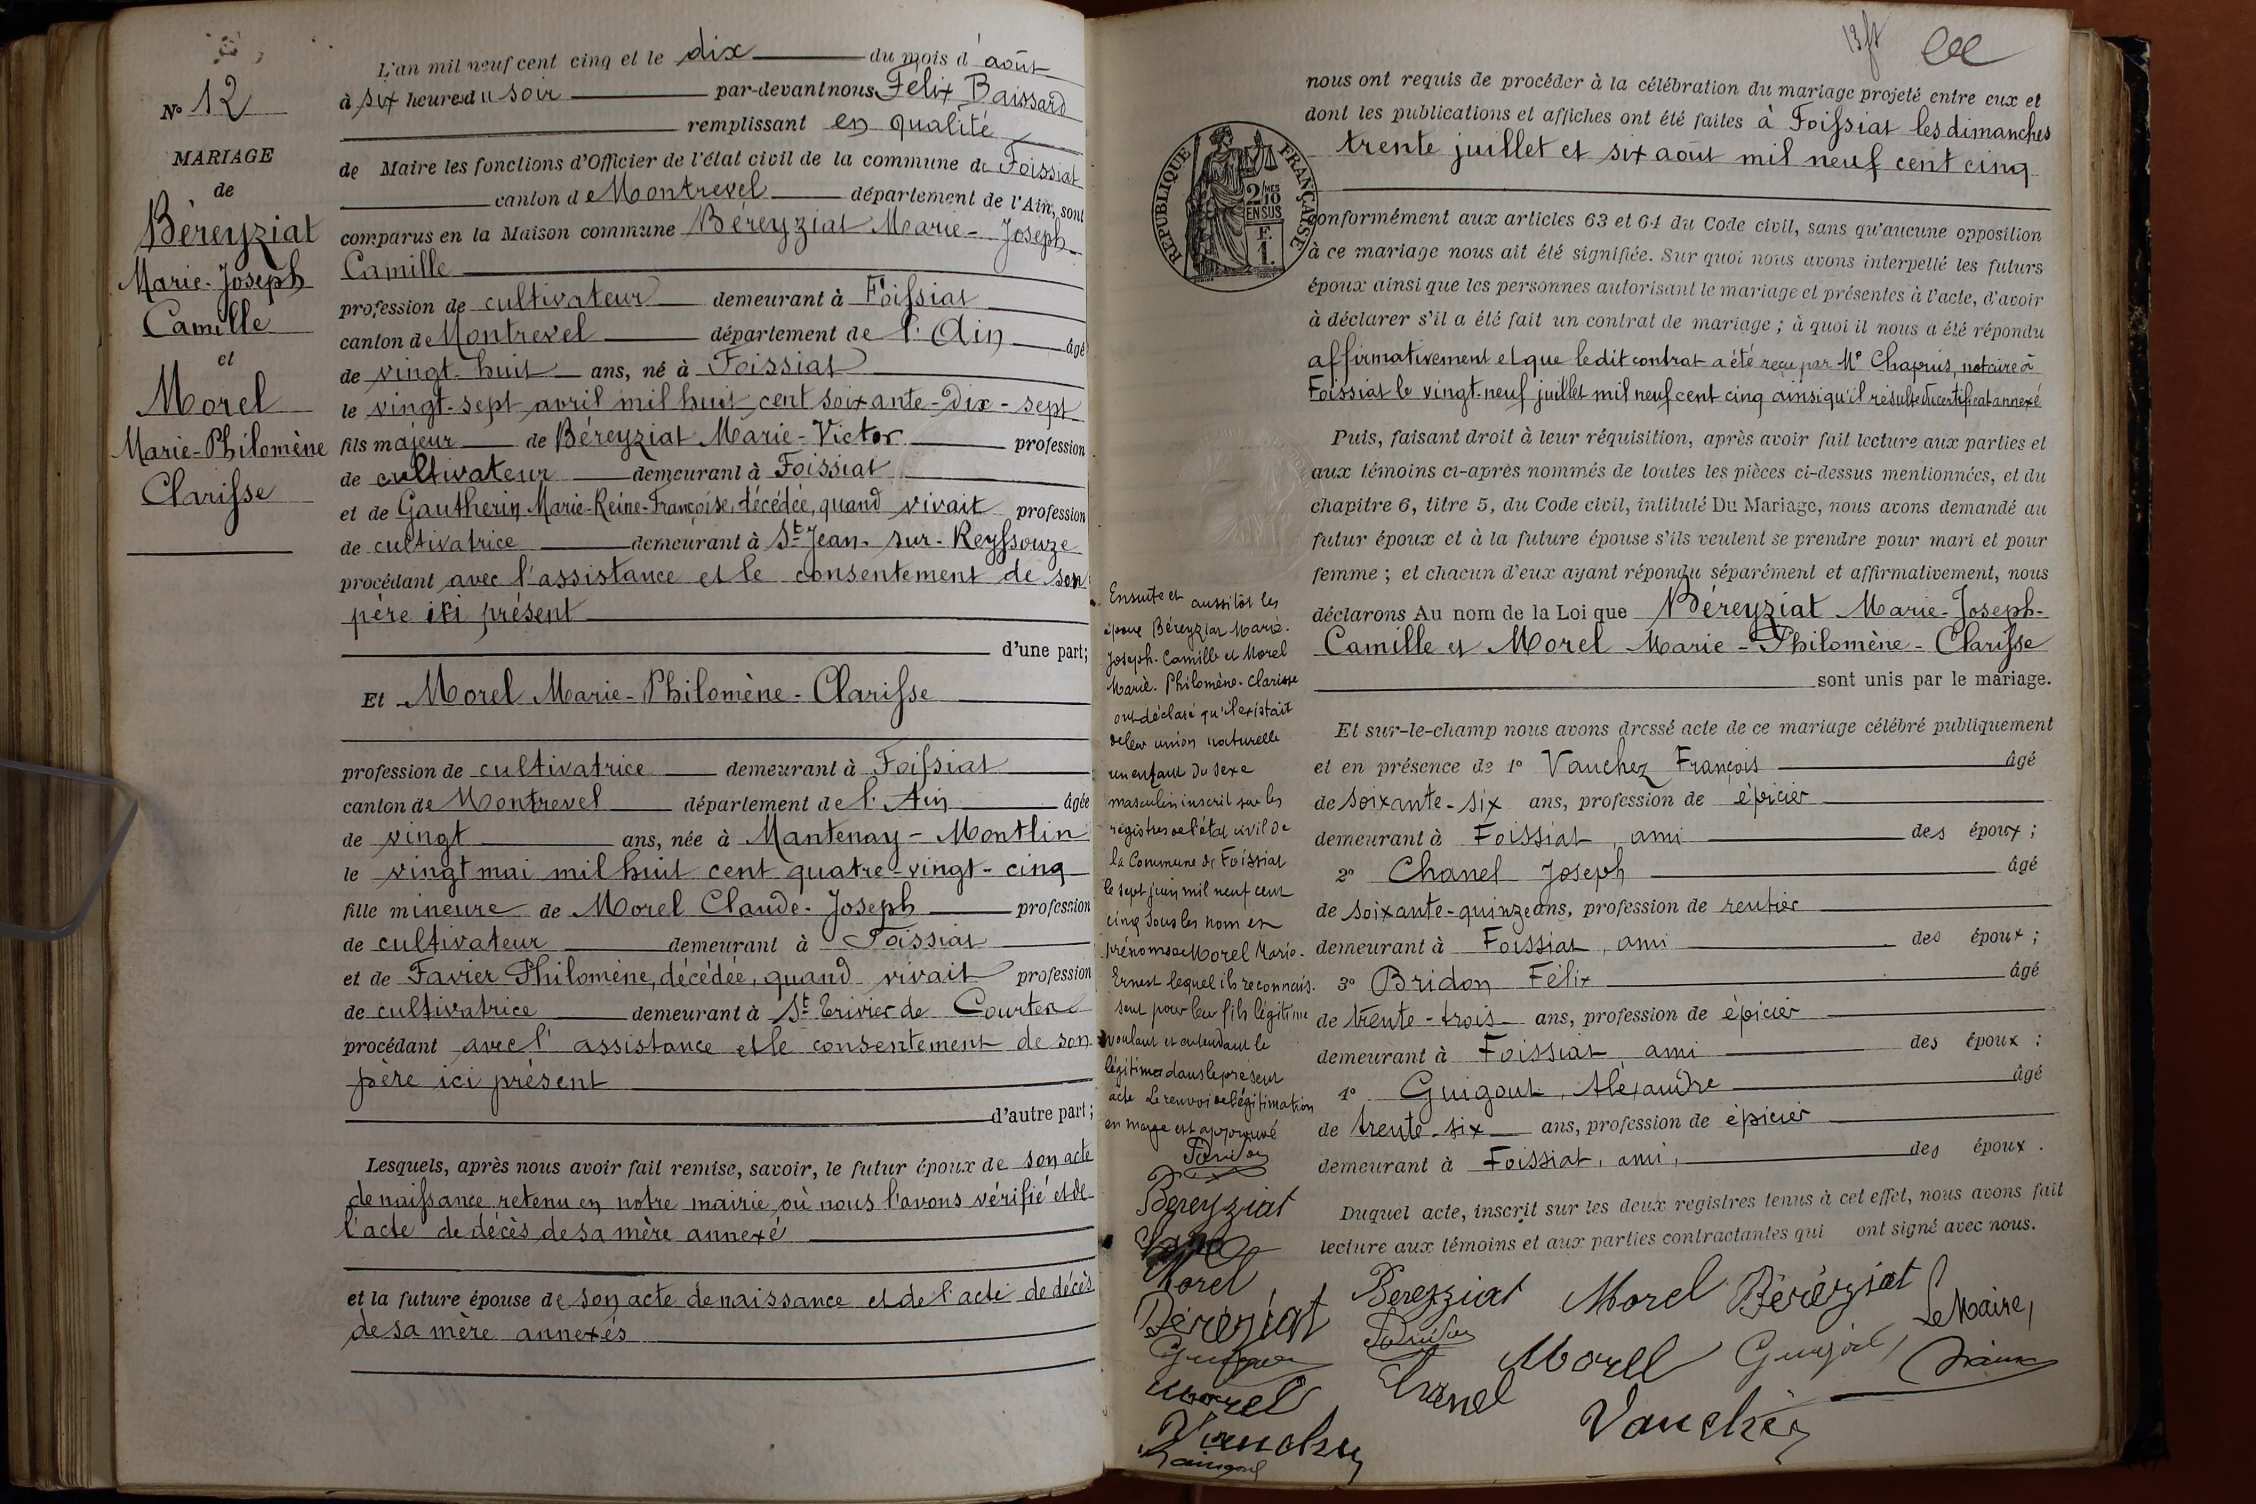 N° 12
MARIAGE
de
Béreyziat
Marie-Joseph
Camille
et
Morel
Marie-Philomène
Clarisse
L'an mil neuf cent cinq et le dix du mois d'août
à six heures du soir par-devant nous Félix Baissard
remplissant en qualité
de Maire les fonctions d'Officier de l'état civil de la commune de Foissiat
canton de Montrevel département de l'Ain, sont
comparus en la Maison commune Béreyziat Marie-Joseph
Camille
profession de cultivateur demeurant à Foissiat
canton de Montrevel département de l'Ain âgé
de vingt-huit ans, né à Foissiat
le vingt-sept avril mil huit cent soixante-dix-sept
fils majeur de Béreyziat Marie-Victor profession
de cultivateur demeurant à Foissiat
et de Gautherin Marie-Reine-Françoise, décédée, quand vivait profession
de cultivatrice demeurant à St Jean-sur-Reyssouze
procédant avec l'assistance et le consentement de son
père ici présent
d'une part;
Et Morel Marie-Philomène-Clarisse
profession de cultivatrice demeurant à Foissiat
canton de Montrevel département de l'Ain âgée
de vingt ans, née à Mantenay-Montlin
le vingt mai mil huit cent quatre-vingt-cinq
fille mineure de Morel Claude-Joseph profession
de cultivateur demeurant à Foissiat
et de Favier Philomène, décédée, quand vivait profession
de cultivatrice demeurant à St Trivier de Courtes
procédant avec l'assistance et le consentement de son
père ici présent
d'autre part;
Lesquels, après nous avoir fait remise, savoir, le futur époux de son acte
de naissance retenu en notre mairie où nous l'avons vérifié et de
l'acte de décès de sa mère annexé
et la future épouse de son acte de naissance et de l'acte de décès
de sa mère annexés
RÉPUBLIQUE FRANÇAISE
2/10 MES
EN SUS
F.
1.
nous ont requis de procéder à la célébration du mariage projeté entre eux et
dont les publications et affiches ont été faites à Foissiat les dimanches
trente juillet et six août mil neuf cent cinq
conformément aux articles 63 et 64 du Code civil, sans qu'aucune opposition
à ce mariage nous ait été signifiée. Sur quoi nous avons interpellé les futurs
époux ainsi que les personnes autorisant le mariage et présentes à l'acte, d'avoir
à déclarer s'il a été fait un contrat de mariage ; à quoi il nous a été répondu
affirmativement et que ledit contrat a été reçu par Me Chapuis, notaire à
Foissiat le vingt-neuf juillet mil neuf cent cinq ainsi qu'il résulte du certificat annexé
Puis, faisant droit à leur réquisition, après avoir fait lecture aux parties et
aux témoins ci-après nommés de toutes les pièces ci-dessus mentionnées, et du
chapitre 6, titre 5, du Code civil, intitulé Du Mariage, nous avons demandé au
futur époux et à la future épouse s'ils veulent se prendre pour mari et pour
femme ; et chacun d'eux ayant répondu séparément et affirmativement, nous
déclarons Au nom de la Loi que Béreyziat Marie-Joseph-
Camille et Morel Marie-Philomène-Clarisse
sont unis par le mariage.
Et sur-le-champ nous avons dressé acte de ce mariage célébré publiquement
et en présence de 1° Vauchez François âgé
de soixante-six ans, profession de épicier
demeurant à Foissiat, ami des époux ;
2° Chanel Joseph âgé
de soixante-quinze ans, profession de rentier
demeurant à Foissiat, ami des époux ;
3° Bridon Félix âgé
de trente-trois ans, profession de épicier
demeurant à Foissiat, ami des époux ;
4° Guigout, Alexandre âgé
de trente-six ans, profession de épicier
demeurant à Foissiat, ami, des époux.
Duquel acte, inscrit sur les deux registres tenus à cet effet, nous avons fait
lecture aux témoins et aux parties contractantes qui ont signé avec nous.
Ensuite et aussitôt les
époux Béreyziat Marie-
Joseph-Camille et Morel
Marie-Philomène-Clarisse
ont déclaré qu'il existait
de leur union naturelle
un enfant du sexe
masculin inscrit sur les
registres de l'état civil de
la Commune de Foissiat
le sept juin mil neuf cent
cinq sous les nom et
prénoms de Morel Marie-
Ernest lequel ils reconnais-
sent pour leur fils légitime
voulant et entendant le
légitimer dans le présent
acte Le renvoi de légitimation
en marge est approuvé
Béreyziat
Morel
Béréziat
Morel
Vauchez
Béreyziat Morel Béréyziat Le Maire,
Morel
Chanel
Vauchez